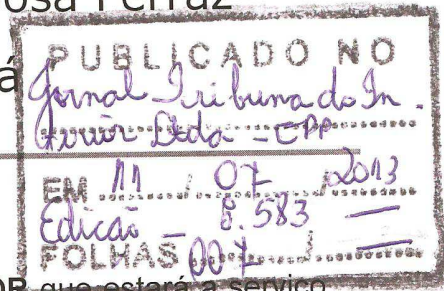 osa Ferraz
á
PUBLICADO NO
Jornal Tribuna do In
terior Ltda - EPP
EM 11 / 07 / 2013
Edição _ 8.583 —
FOLHAS 007 / —
OR que estará a serviço